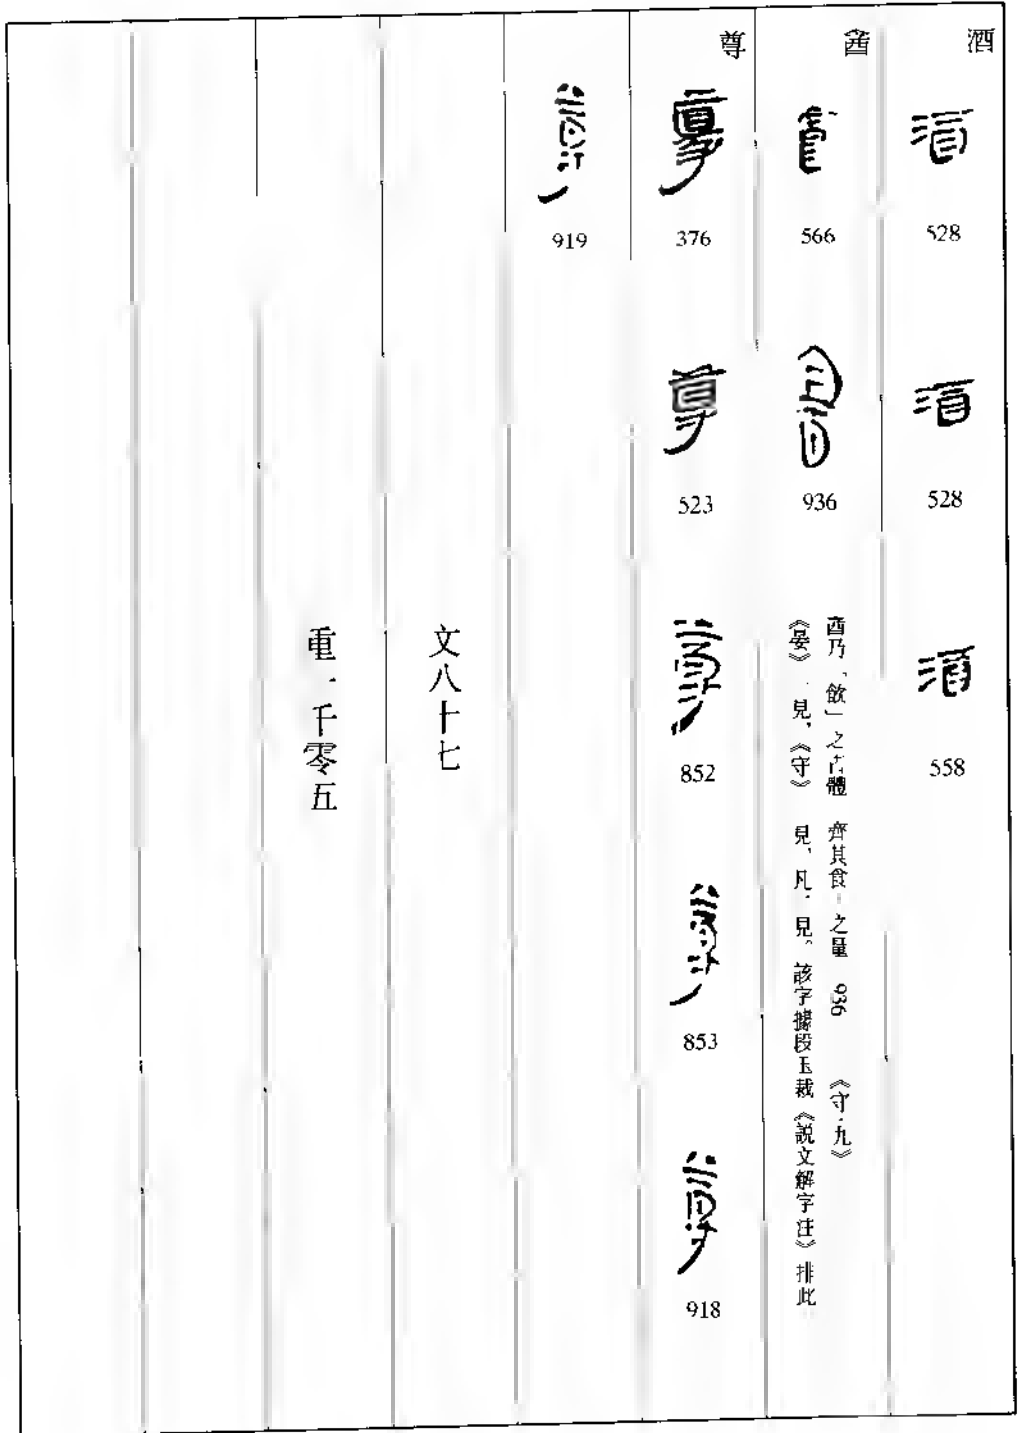 酒
528
528
558
酓
566
936
酓乃「飲」之古體 齊其食 之量 936 《守·九》
《晏》一見，《守》 見，凡 見。該字據段玉裁《説文解字注》排此
尊
376
523
852
853
918
919
文八十七
重一千零五